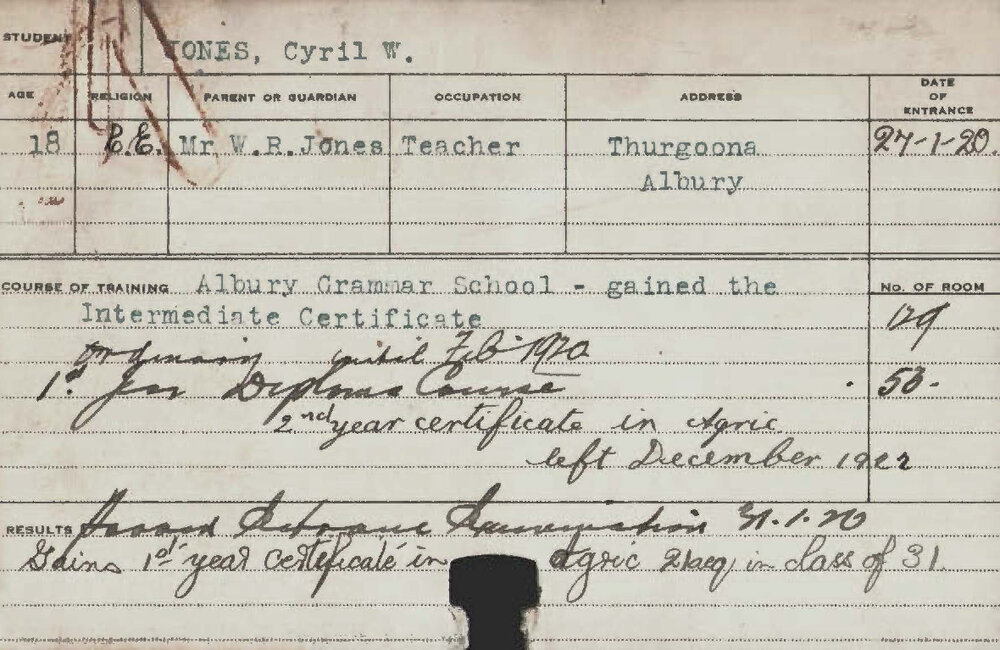 STUDENT JONES, Cyril W.
AGE RELIGION PARENT OR GUARDIAN OCCUPATION ADDRESS DATE OF ENTRANCE
18 C.E. Mr W.R.Jones Teacher Thurgoona 27-1-20.
Albury
COURSE OF TRAINING Albury Grammar School - gained the No. OF ROOM
Intermediate Certificate 129
until Feb 1920
1st year Diploma Course 53.
2nd year certificate in Agric
left December 1922
RESULTS Passed Entrance Examination 31.1.20
Gains 1st year certificate in Agric 21aeq in class of 31.